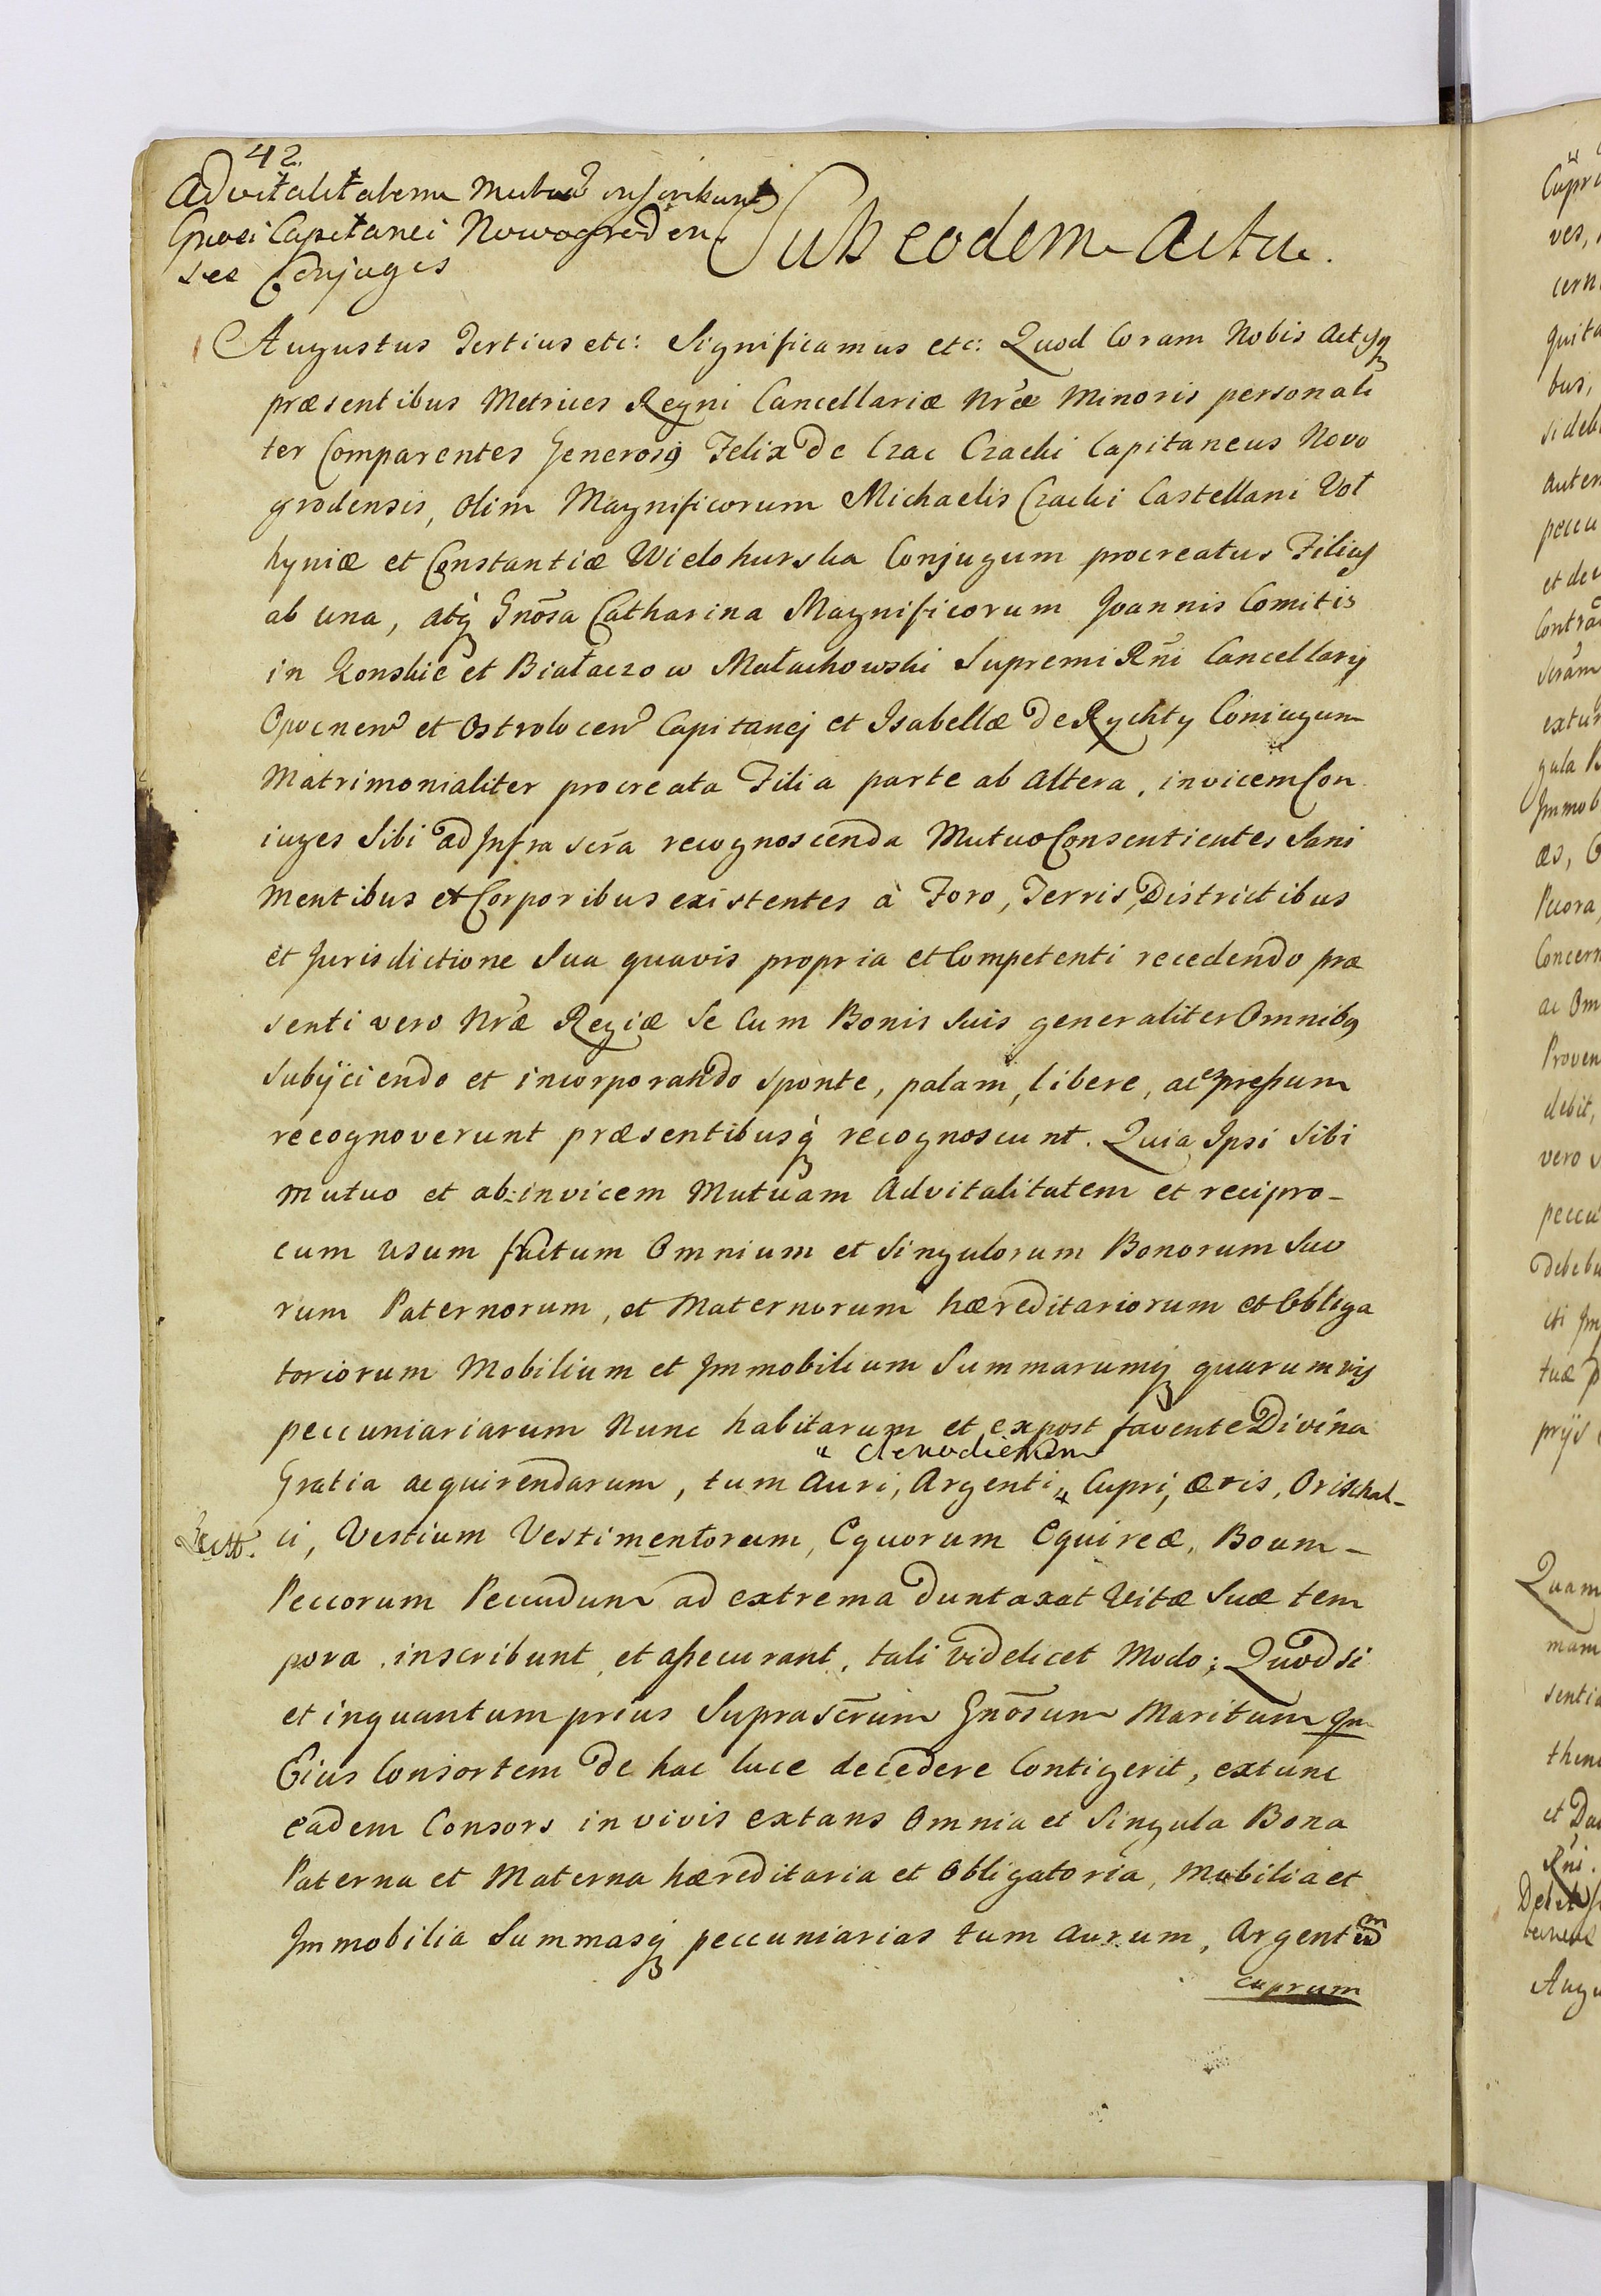 42.
Advitalitatem Mutuã inscribunt
Gnosi Capitanei Nowogroden
ses Conjuges
Sub eodem Actu.
Augustus Tertius etc: Significamus etc: Quod Coram Nobis Actisq
præsentibus Metrices Regni Cancellariæ Nræ Minoris personali
ter Comparentes Generosq Felix De Czac Czacki Capitaneus Novo
grodensis, Olim Magnificorum Michaelis Czacki Castellani Vol
hyniæ et Constantiæ Wielohurska Conjugum procreatus Filius
ab una, atq Gnõsa Catharina Magnificorum Joannis Comitis
in Konskie et Białaczow Małachowski Supremi Rñi Cancellarij
Opocnen et Ostrolocen Capitanej et Isabellæ De Rychty Coniugum
Matrimonialiter procreata Filia parte ab Altera, invicem Con
iuges Sibi ad Infra scr̃a recognoscenda Mutuo Consentientes Sani
Mentibus et Corporibus existentes à Foro, Terris, Districtibus
et Jurisdictione Sua quavis propria et Competenti recedendo præ
senti vero Nræ Regiæ Se Cum Bonis Suis generaliter Omnibq
Subijciendo et incorporando sponte, palam, libere, ac expressum
recognoverunt præsentibusq recognoscunt. Quia Ipsi Sibi
Mutuo et ab-invicem Mutuam Advitalitatem et recipro-
cum usum fructum Omnium et Singulorum Bonorum Suo
rum Paternorum, et Maternorum hæreditariorum et Obliga
toriorum Mobilium et Immobilium Summarumq quarumvis
peccuniariarum Nunc habitarum et expost favente Divina
" Clenodiorum
Gratia acquirendarum, tum Auri, Argenti " Cupri, Æris, Orichal-
ci, Vestium Vestimentorum, Equorum Equireæ, Boum-
Peccorum Pecudum ad extrema Duntaxat Vitæ Suæ tem
pora, inscribunt, et assecurant, tali videlicet Modo; Quod si
et inquantum prius Suprascr̃um Gnõsum Maritum qm
Eius Consortem De hac luce decedere Contigerit, extunc
eadem Consors in vivis extans Omnia et Singula Bona
Paterna et Materna hæreditaria et Obligatoria, Mobilia et
Immobilia Summasq peccuniarias tum Aurum, Argentum
cuprum
Cupr
ves,
cern
quita
bus,
si deb
Autem
peccu
et de
Contra
scram
extu
gula B
Immob
æs,
Pecora,
Concern
ac Om
Proven
debit,
vero
peccu
Debebu
cti Im
tuæ p
prijs
Quam
mam
sentia
then
et Da
Rñi.
Augu